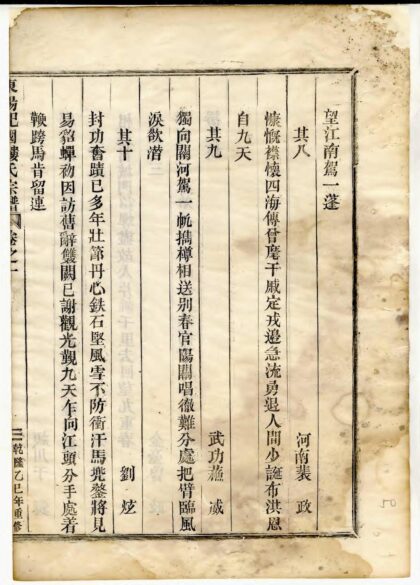 望江南駕一蓬
其八 河南裴政
慷慨襟懷四海傳曾麾干戚定戎邊急流勇退人間少誕布洪恩
自九天
其九 武功蘇威
獨向關河駕一帆擕樽相送別春官陽關唱徹難分處把臂臨風
淚欲潸
其十 劉炫
封功奮蹟已多年壯節丹心鉄石堅風雪不防衝汗馬兜鍪將見
易貂蟬初因訪舊辭雙闕已謝觀光覲九天乍向江頭分手處着
鞭跨馬肯留連
東陽 國 氏宗譜 卷之二
乾隆乙巳年重修